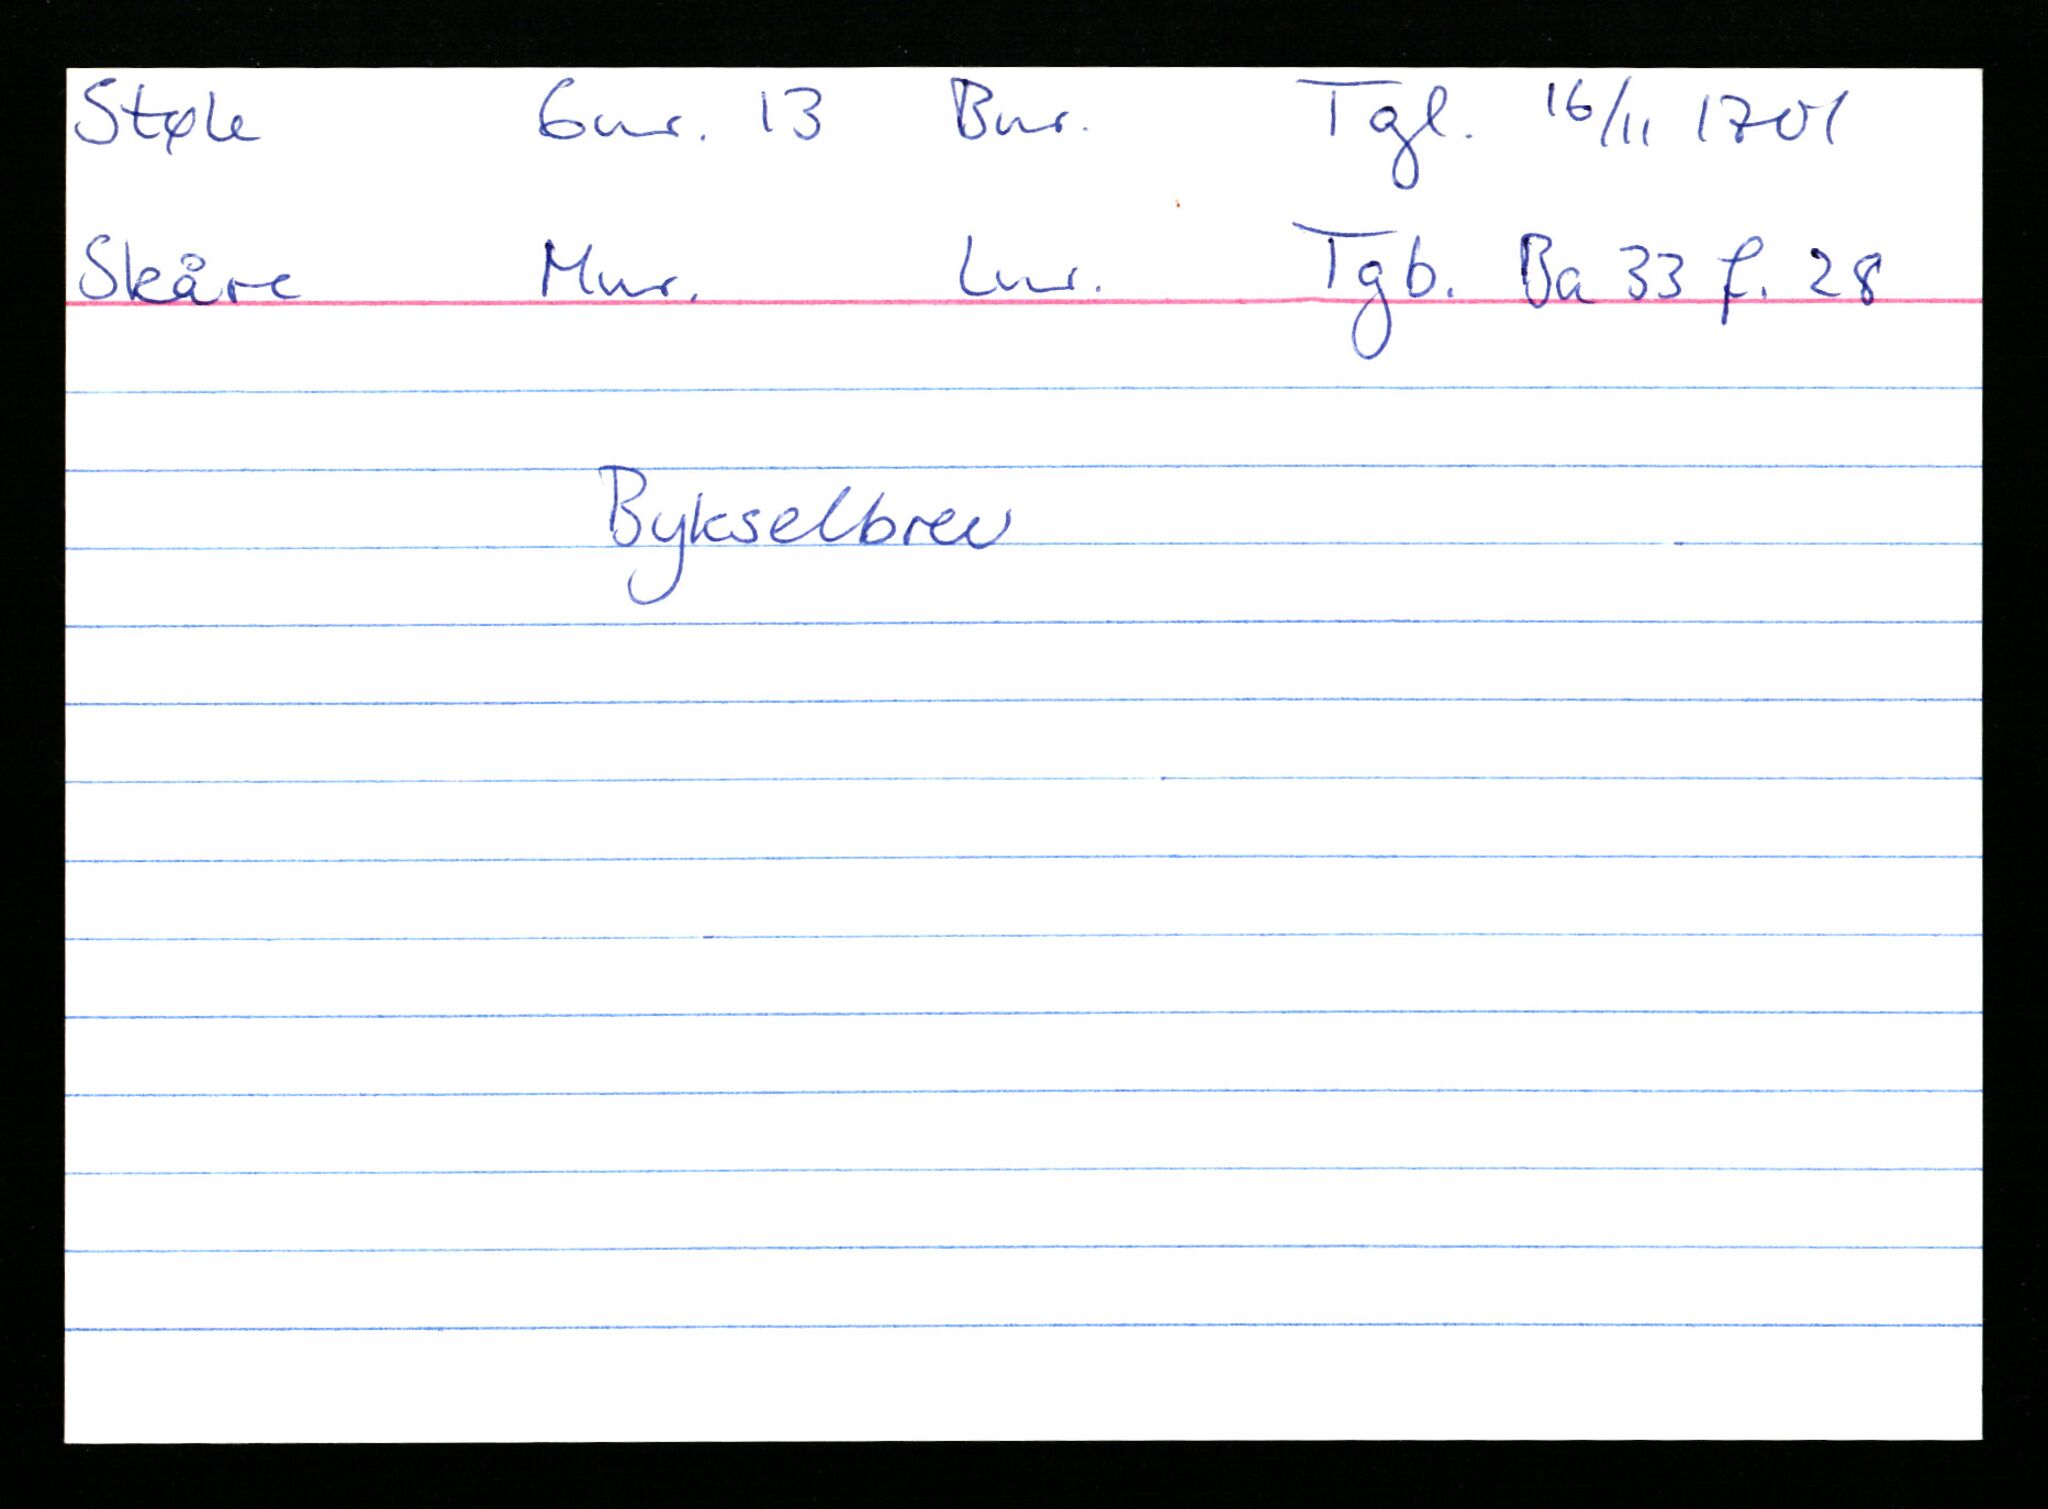 Støle Gnr. 13 Bnr. Tgl. 16/11 1701
Skåre Mnr. Lnr. Tgb. Ba 33 f. 28
Bykselbrev